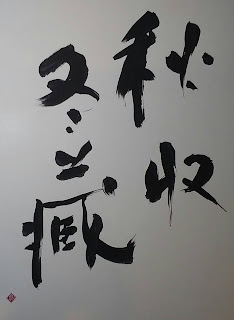 秋收
冬藏